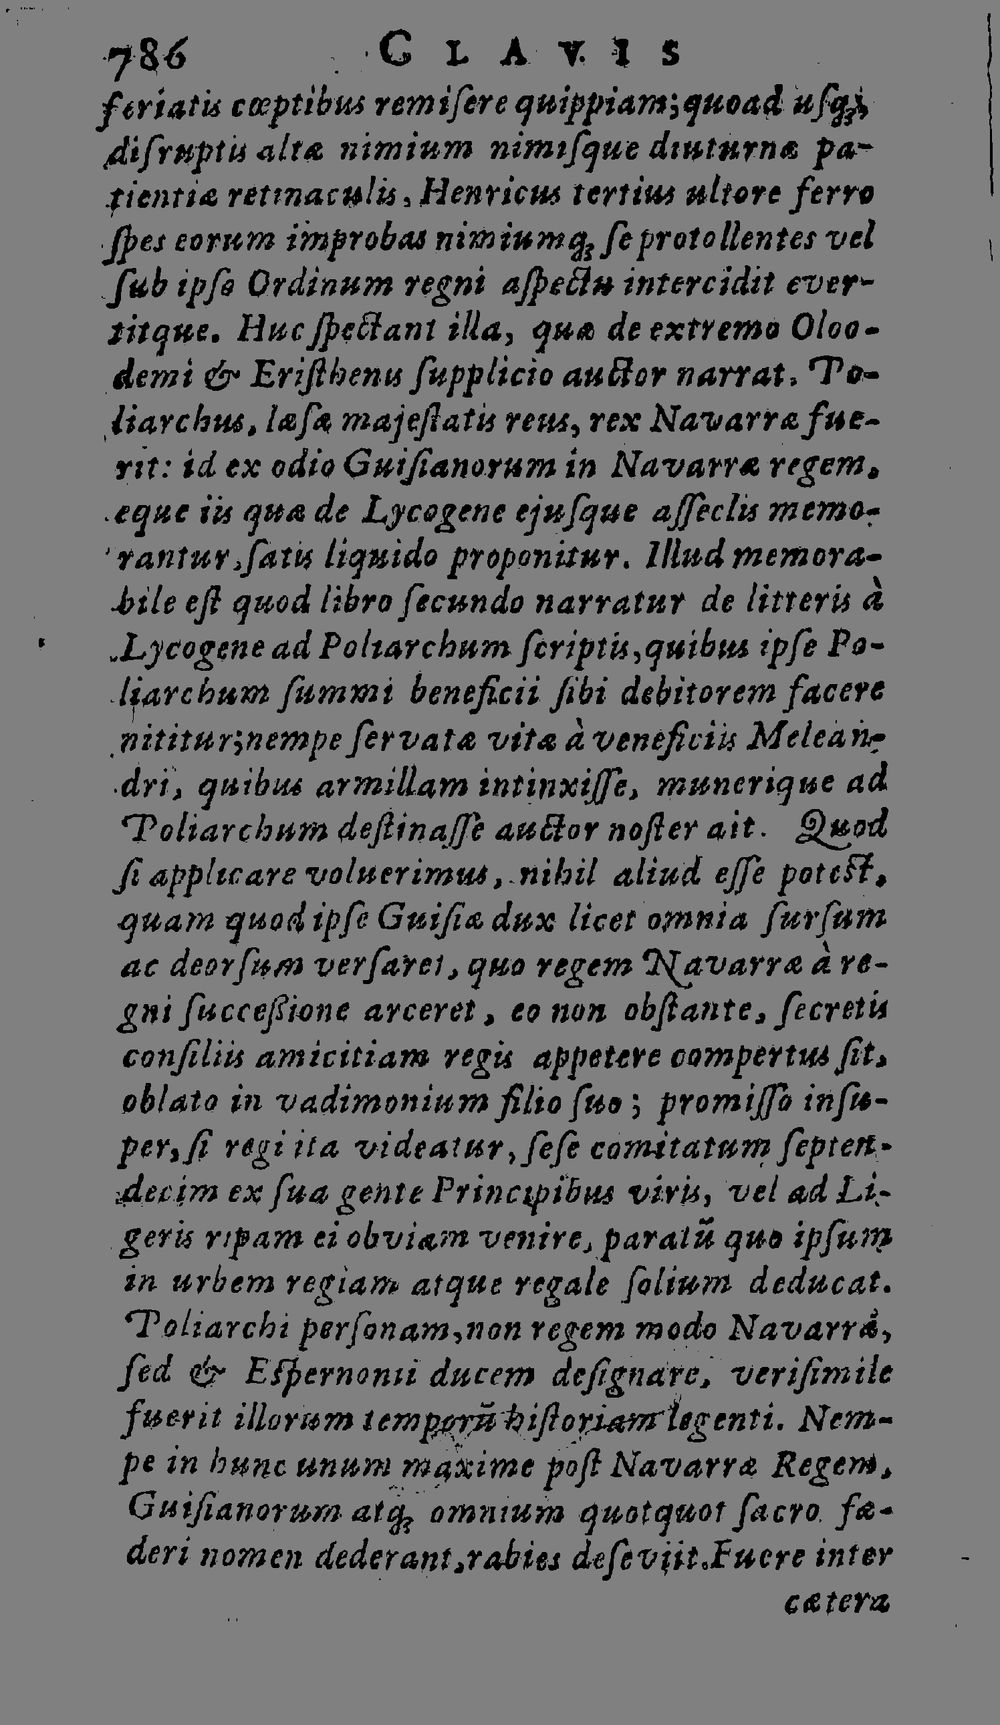 786 CLAVIS
feriatis cœptibus remiſere quippiam; quoad uſq́;
diſruptis altæ nimium nimiſque diuturnæ pa-
tientiæ retinaculis, Henricus tertius ultore ferro
ſpes eorum improbas nimiumq; ſe protollentes vel
ſub ipſo Ordinum regni aſpectu intercidit ever-
titque. Huc ſpectant illa, quæ de extremo Oloo-
demi & Eriſthenis ſupplicio auctor narrat. Po-
liarchus, læſæ majeſtatis reus, rex Navarræ fue-
rit: id ex odio Guiſianorum in Navarræ regem,
eque iis quæ de Lycogene ejuſque aſſeclis memo-
rantur, ſatis liquido proponitur. Illud memora-
bile eſt quod libro ſecundo narratur de litteris à
Lycogene ad Poliarchum ſcriptis, quibus ipſe Po-
liarchum ſummi beneficii ſibi debitorem facere
nititur; nempe ſervatæ vitæ à veneficiis Melean-
dri, quibus armillam intinxiſſe, munerique ad
Poliarchum deſtinaſſe auctor noſter ait. Quod
ſi applicare voluerimus, nihil aliud eſſe poteſt,
quam quod ipſe Guiſiæ dux licet omnia ſurſum
ac deorſum verſaret, quo regem Navarræ à re-
gni ſucceßione arceret, eo non obſtante, ſecretis
conſiliis amicitiam regis appetere compertus ſit,
oblato in vadimonium filio ſuo; promiſſo inſu-
per, ſi regi ita videatur, ſeſe comitatum ſepten-
decim ex ſua gente Principibus viris, vel ad Li-
geris ripam ei obviam venire, paratū quo ipſum
in urbem regiam atque regale ſolium deducat.
Poliarchi perſonam, non regem modo Navarræ,
ſed & Eſpernonii ducem deſignare, veriſimile
fuerit illorum temporū hiſtoriam legenti. Nem-
pe in hunc unum maxime poſt Navarræ Regem,
Guiſianorum atq; omnium quotquot ſacro fœ-
deri nomen dederant, rabies deſeviit. Fuere inter
cætera